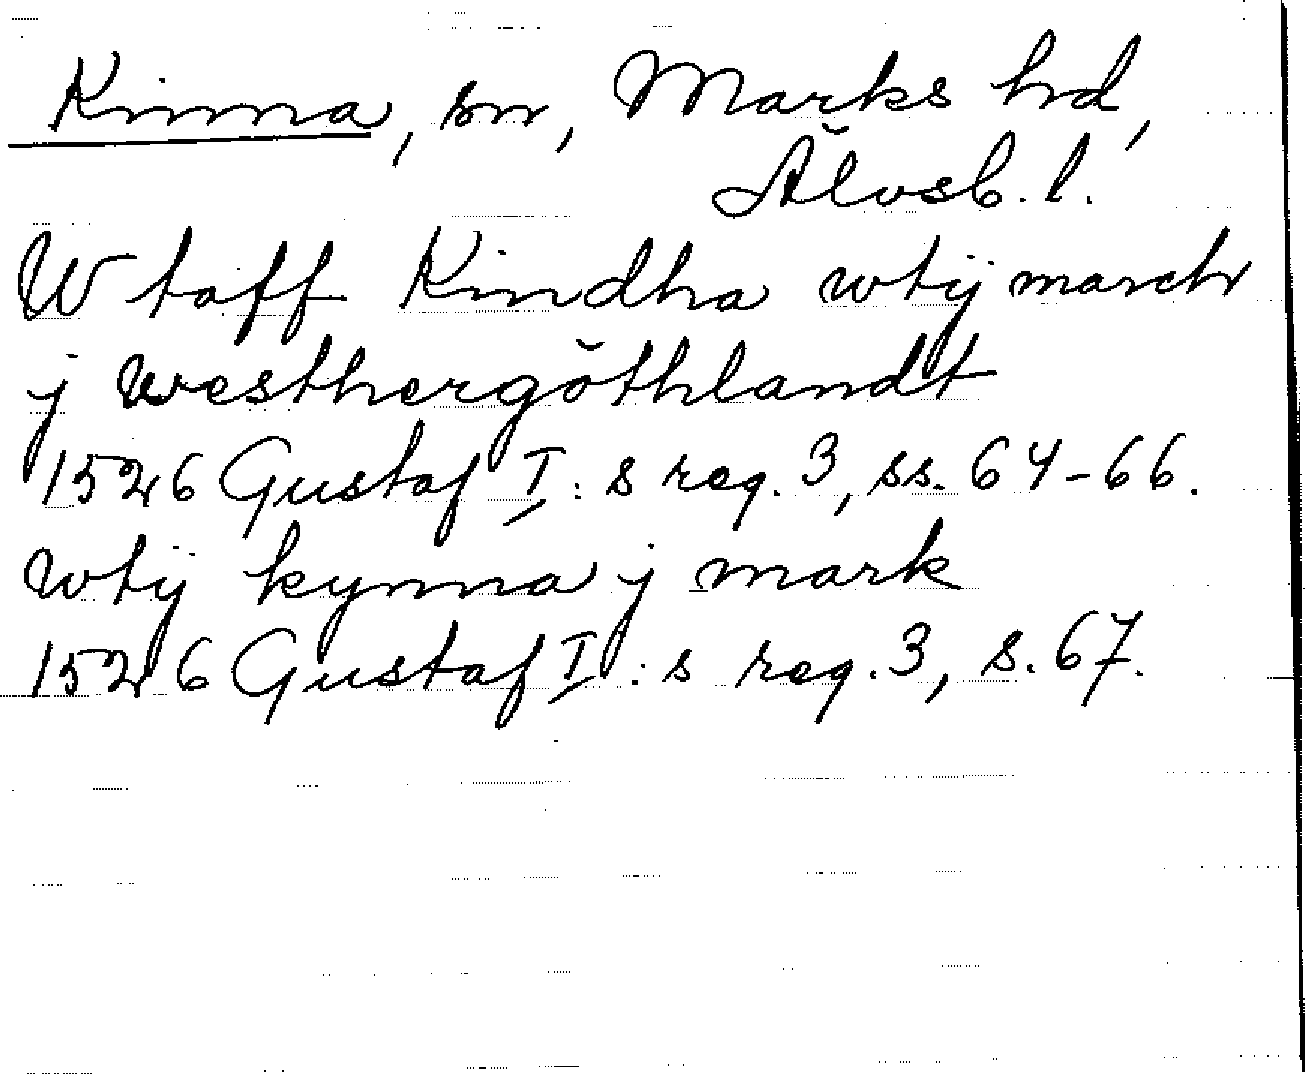 Kinna, sn, Marks hd,
Älvsb. l.
W taff Kindha wtij march
j westhergöthlandt
1526 Gustaf I:s reg. 3, ss. 64-66.
wtij kynna j mark
1526 Gustaf I:s reg. 3, s. 67.